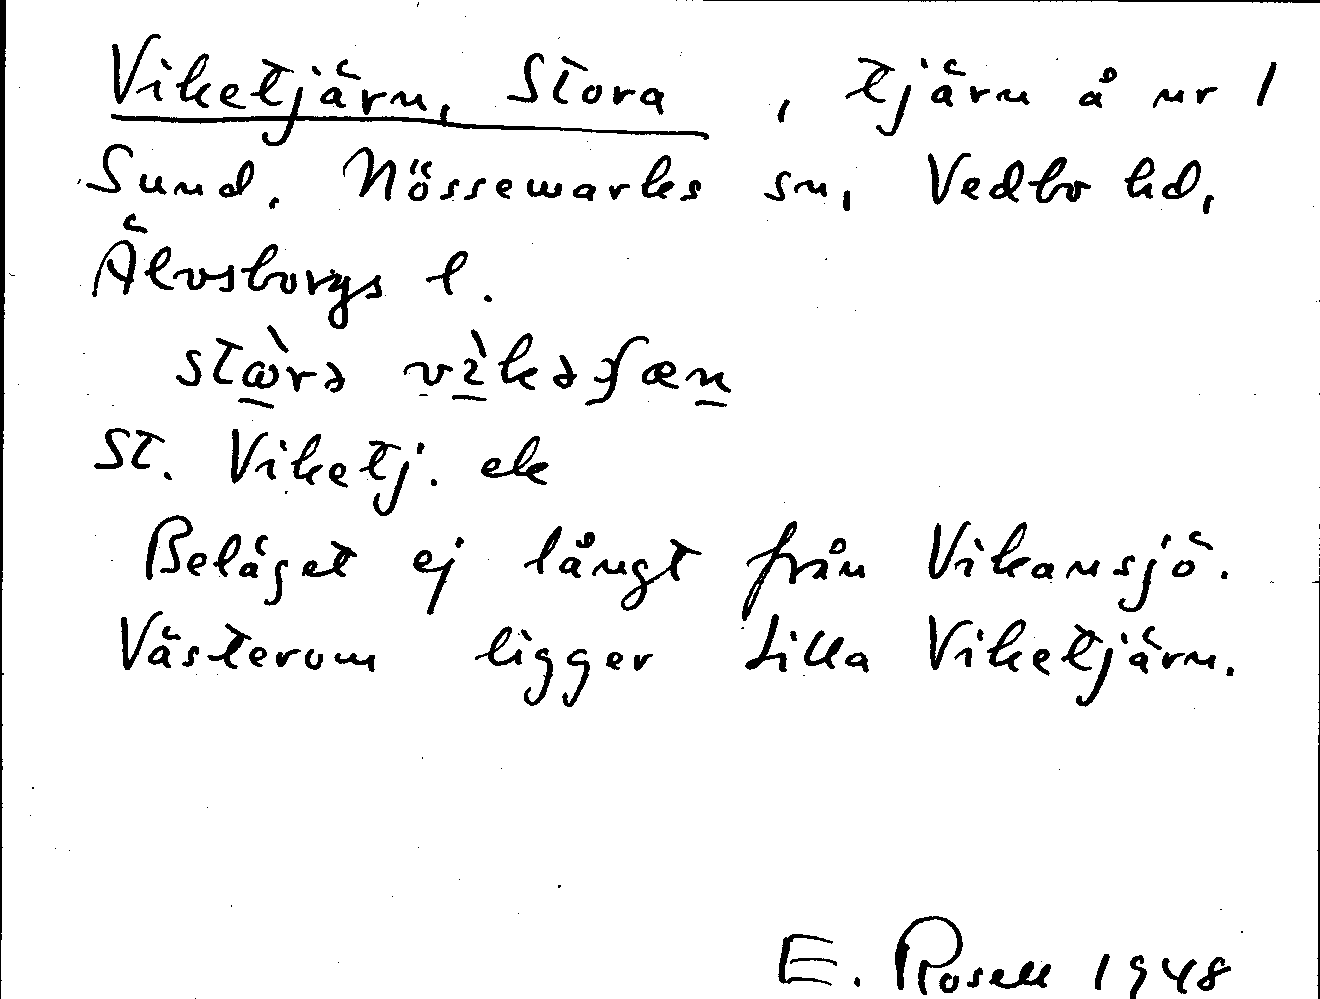 Viketjärn, Stora , tjärn å nr 1
Sund, Nössemarks sn, Vedbo hd,
Älvsborgs l.
St. Viketj. ek
Beläget ej långt från Vikansjö.
Västerom ligger Lilla Viketjärn.
E. Rosell 1948